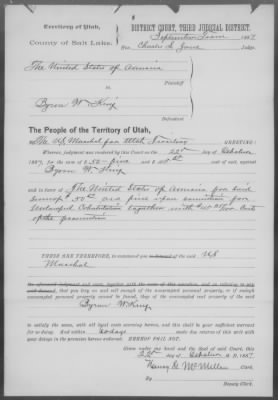 Territory of Utah,
County of Salt Lake.
DISTRICT COURT, THIRD JUDICIAL DISTRICT.
September Term 1887
Hon. Charles S. Zane Judge.
The United States of America
Plaintiff
vs.
Byron W King
The People of the Territory of Utah,
To The US Marshal for Utah Territory GREETING:
Whereas, judgment was rendered by this Court on the 22nd day of October
1887, for $ 50 fine and $ costs of suit, against
Byron W King
and in favor of The United States of America for said
sum of $50.00 as a fine upon conviction for
Unlawful Cohabitation together with costs
of the prosecution
THESE ARE THEREFORE, to command you of the said US
Marshal
Byron W King
to satisfy the same, with all legal costs accruing herein, and this shall be your sufficient warrant
for so doing. And within 60 days made due return of this writ with
your doings in the premises hereon endorsed. HEREOF FAIL NOT.
Given under my hand and the Seal of said Court, this
22nd day of October A. D. 1887
Henry G. McMillan Clerk.
By
Deputy Clerk.